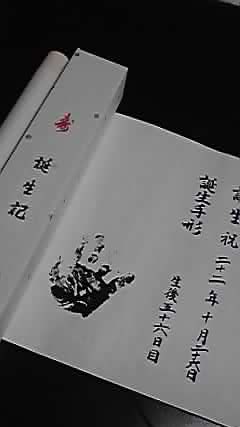 寿
誕生記
誕生祝 二十二年十月二十六日
誕生手形
生後五十六日目